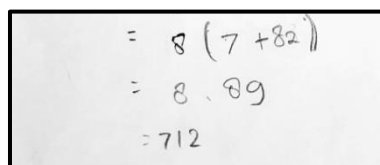 = 8 (7 + 82)
= 8 . 89
= 712